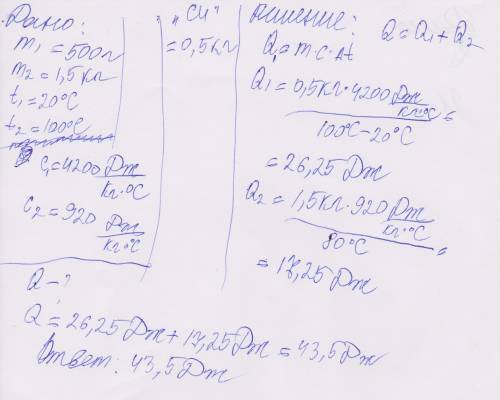 Дано:
m₁ = 500г
m₂ = 1,5 кг
t₁ = 20°C
t₂ = 100°C
c₁ = 4200 Дж/кг·°C
c₂ = 920 Дж/кг·°C
Q - ?
"СИ"
= 0,5 кг
Решение:
Q = Q₁ + Q₂
Q₁ = m·c·Δt
Q₁ = 0,5 кг·4200 Дж/кг·°C =
100°C - 20°C
= 26,25 Дж
Q₂ = 1,5 кг·920 Дж/кг·°C =
80°C
= 17,25 Дж
Q = 26,25 Дж + 17,25 Дж = 43,5 Дж
Ответ: 43,5 Дж